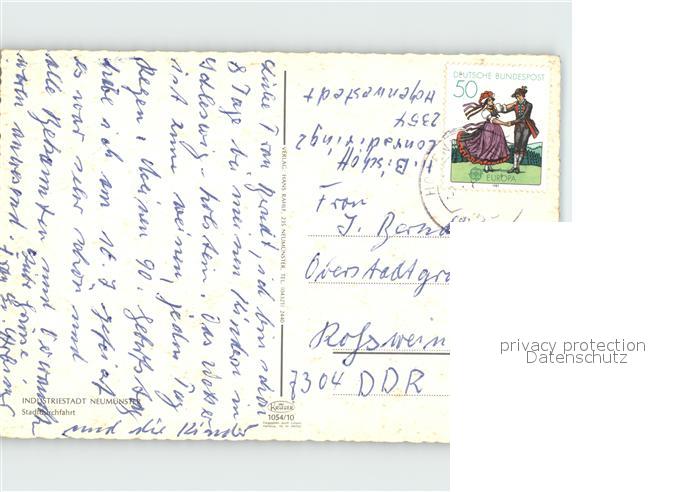 Liebe Frau Berndt, ich bin schon
8 Tage bei meinen Kindern in
Schleswig-Holstein. Das Wetter
ist zum weinen, jeden Tag
Regen. Meinen 90. Geburtstag
habe ich am 10. 7. gefeiert
es war sehr schön und
alle Bekannten und Verwandten
waren anwesend
und die Kinder
H. Bischoff
Conradiring 2
2354
Hohenwestedt
DEUTSCHE BUNDESPOST
50
EUROPA
1981
Frau
J. Bernd
Oberstadtgra
Roßwein
7304 DDR
VERLAG: HANS RAHLF, 235 NEUMÜNSTER, TEL. (04321) 2440
INDUSTRIESTADT NEUMÜNSTER
Stadtdurchfahrt
Krüger
1054/10
privacy protection
Datenschutz